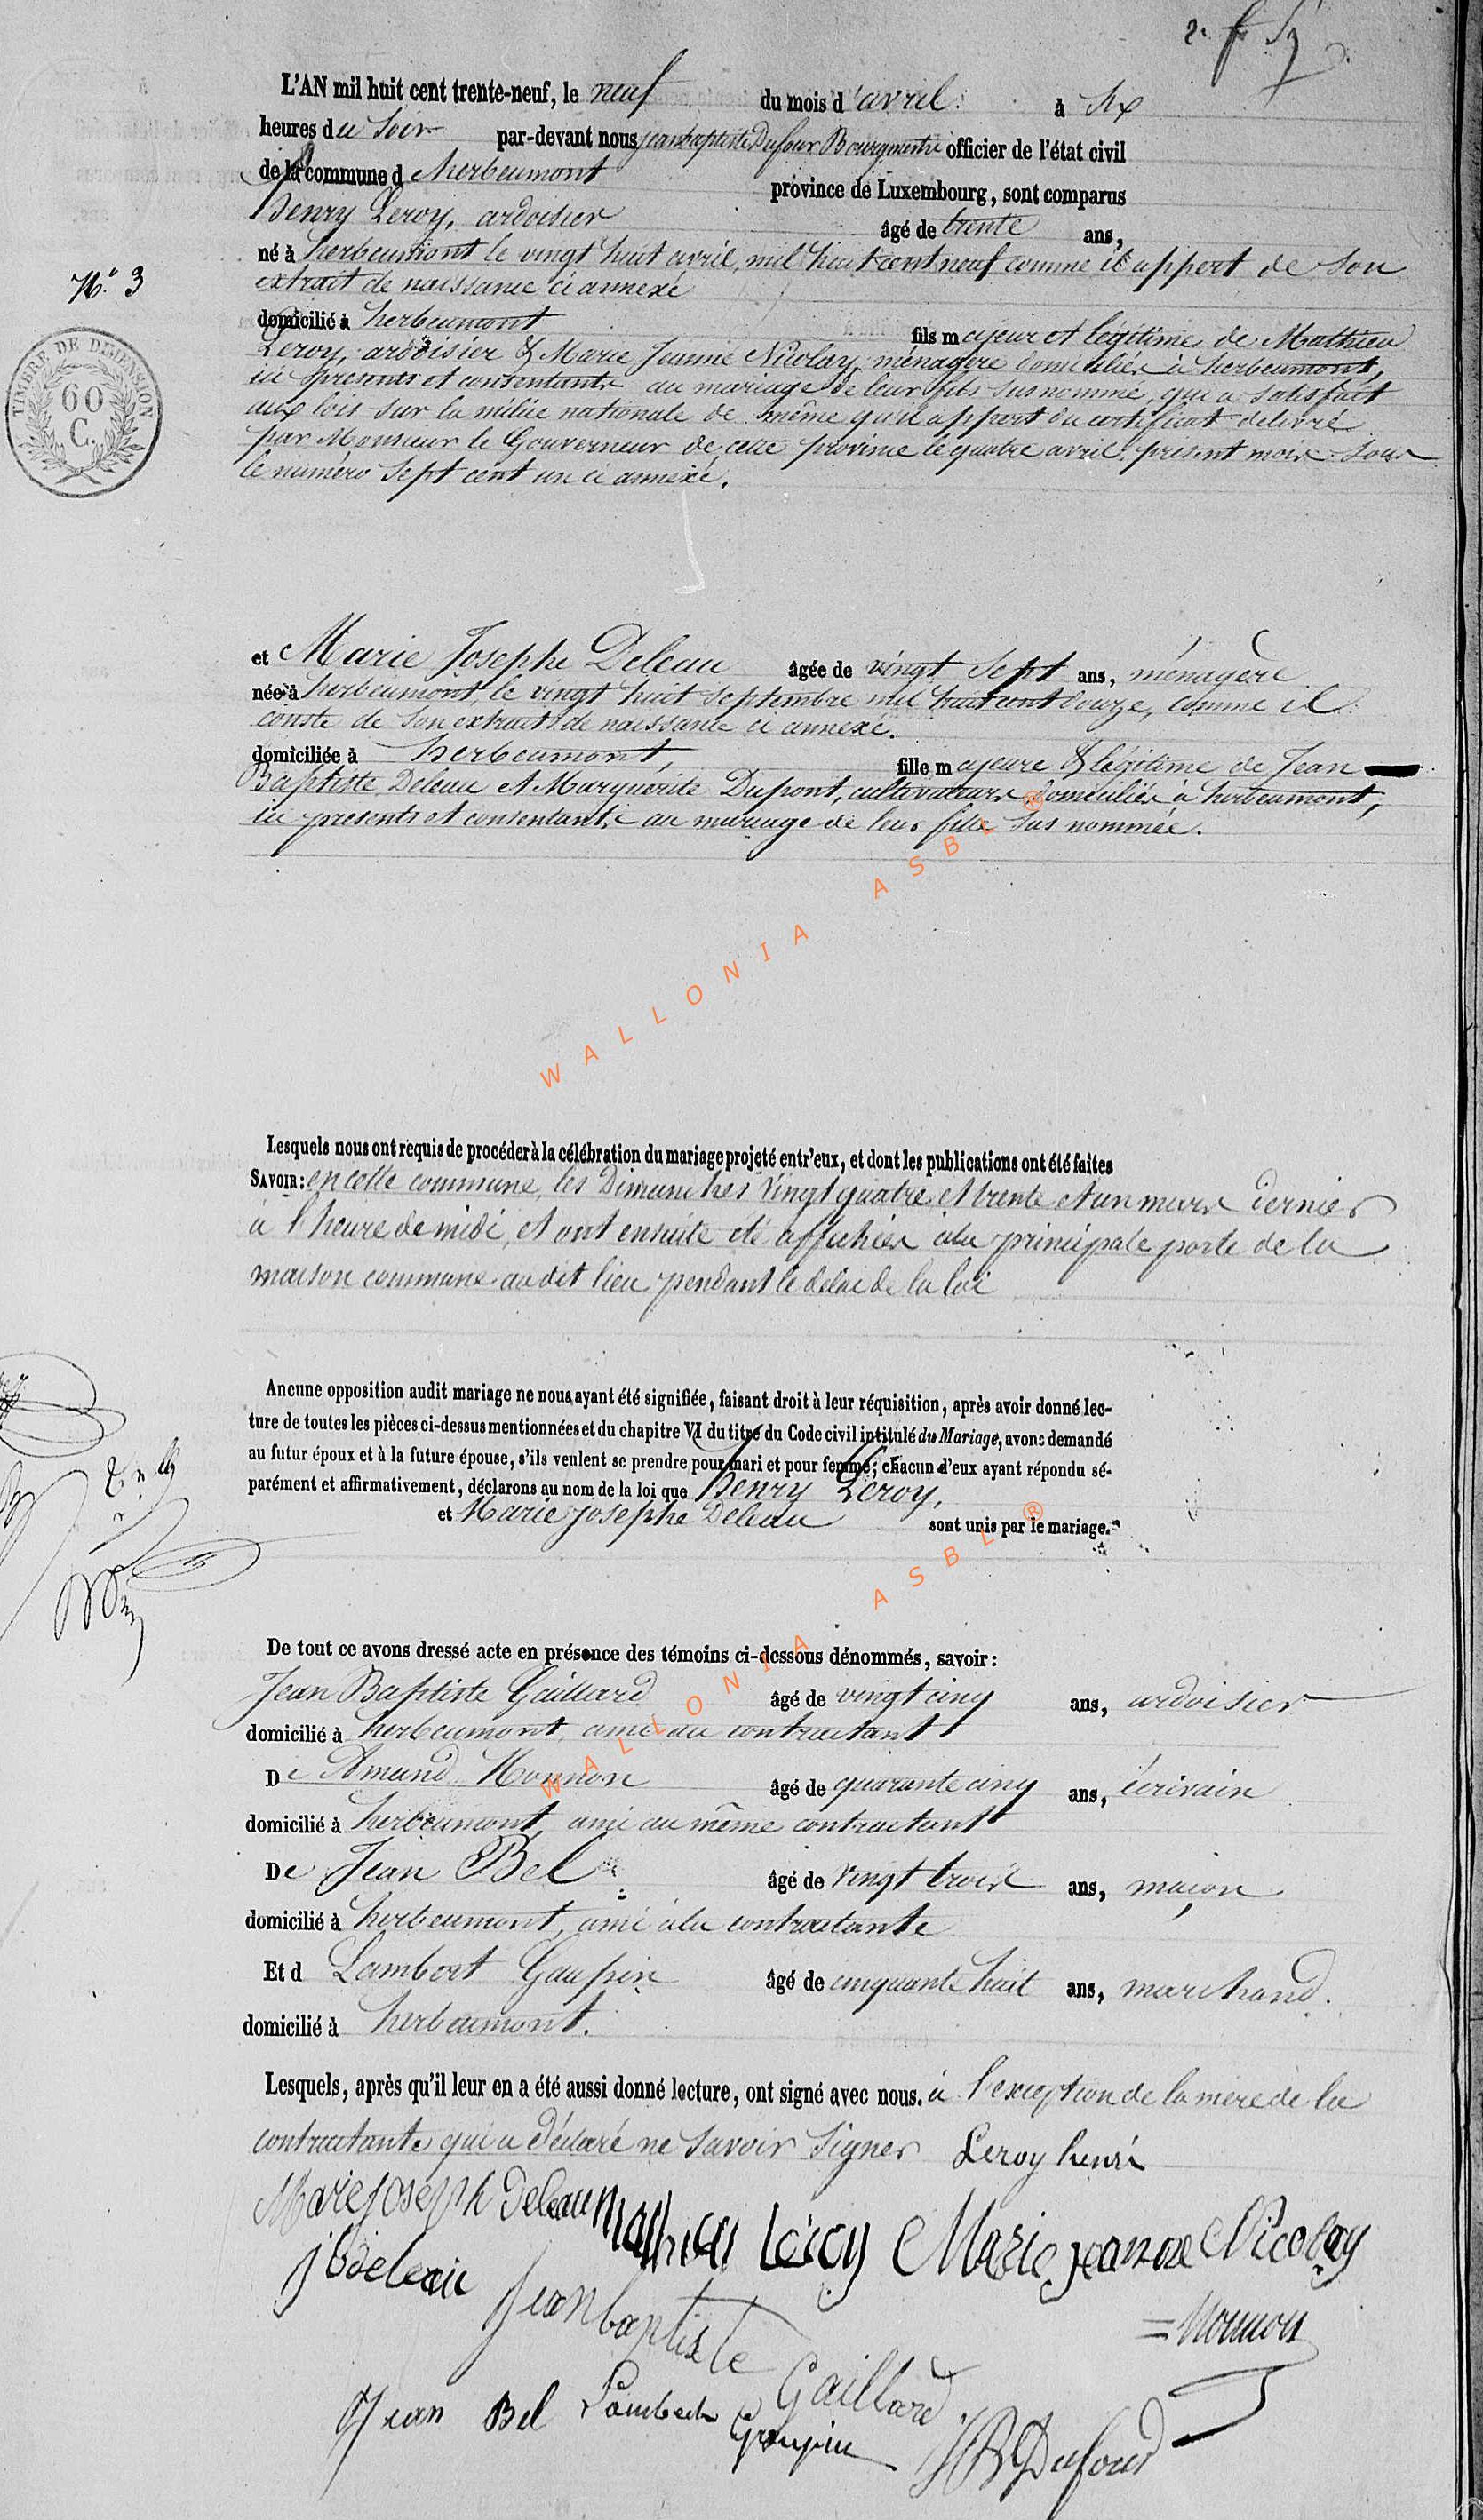 L'AN mil huit cent trente-neuf, le neuf du mois d'avril à six
heures du soir par-devant nous jean baptiste Dufour Bourgmestre officier de l'état civil
de la commune d herbeumont province de Luxembourg, sont comparus
henry Leroy, ardoisier âgé de trente ans,
né à herbeumont le vingt huit avril, mil huit cent neuf comme il appert de son
extrait de naissance ci annexé
N.° 3
domicilié à herbeumont fils majeur et legitime de Mathieu
Leroy, ardoisier & Marie Jeanne Nicolay, ménagère domiciliés à herbeumont,
ici presents et consentants au mariage de leur fils susnommé, qui a satisfait
aux lois sur la milice nationale de même qu'il appert du certificat delivré
par Monsieur le Gouverneur de cette province le quatre avril, présent mois sous
le numéro sept cent un ci annexé.
TIMBRE DE DIMENSION
60
C.
et Marie Josephe Deleau âgée de vingt sept ans, ménagère
née à herbeumont, le vingt huit septembre mil huit cent douze, comme il
conste de son extrait de naissance ci annexé.
domiciliée à herbeumont, fille majeure & légitime de Jean
Baptiste Deleau et Marguerite Dupont, cultivateurs domiciliés à herbeumont,
ici presents et consentants au mariage de leur fille sus nommée.
WALLONIA ASBL ®
Lesquels nous ont requis de procéder à la célébration du mariage projeté entr'eux, et dont les publications ont été faites
SAVOIR: en cette commune, les Dimanches vingt quatre et trente et un mars dernier
à l'heure de midi, et ont ensuite été affichées à la principale porte de la
maison commune audit lieu pendant le delai de la loi
Aucune opposition audit mariage ne nous ayant été signifiée, faisant droit à leur réquisition, après avoir donné lec-
ture de toutes les pièces ci-dessus mentionnées et du chapitre VI du titre du Code civil intitulé du Mariage, avons demandé
au futur époux et à la future épouse, s'ils veulent se prendre pour mari et pour femme; chacun d'eux ayant répondu sé-
parément et affirmativement, déclarons au nom de la loi que henry Leroy,
et Marie josephe Deleau sont unis par le mariage.
WALLONIA ASBL ®
De tout ce avons dressé acte en présence des témoins ci-dessous dénommés, savoir:
Jean Baptiste Gaillard âgé de vingt cinq ans, ardoisier
domicilié à herbeumont, ami au contractant
De Amand Monnon âgé de quarante cinq ans, écrivain
domicilié à herbeumont, ami au même contractant
De Jean Bel âgé de vingt trois ans, maçon
domicilié à herbeumont, ami à la contractante
Et d Lambert Gaupin âgé de cinquante huit ans, marchand.
domicilié à herbeumont.
Lesquels, après qu'il leur en a été aussi donné lecture, ont signé avec nous. à l'exception de la mere de la
contractante qui a déclaré ne savoir signer Leroy henri
Marie joseph deleau Mathieu Leroy Marie jeanne Nicolay
jBdeleau Jean baptiste Gaillard Monnon
Jean Bel Lambert Gaupin JBDufour